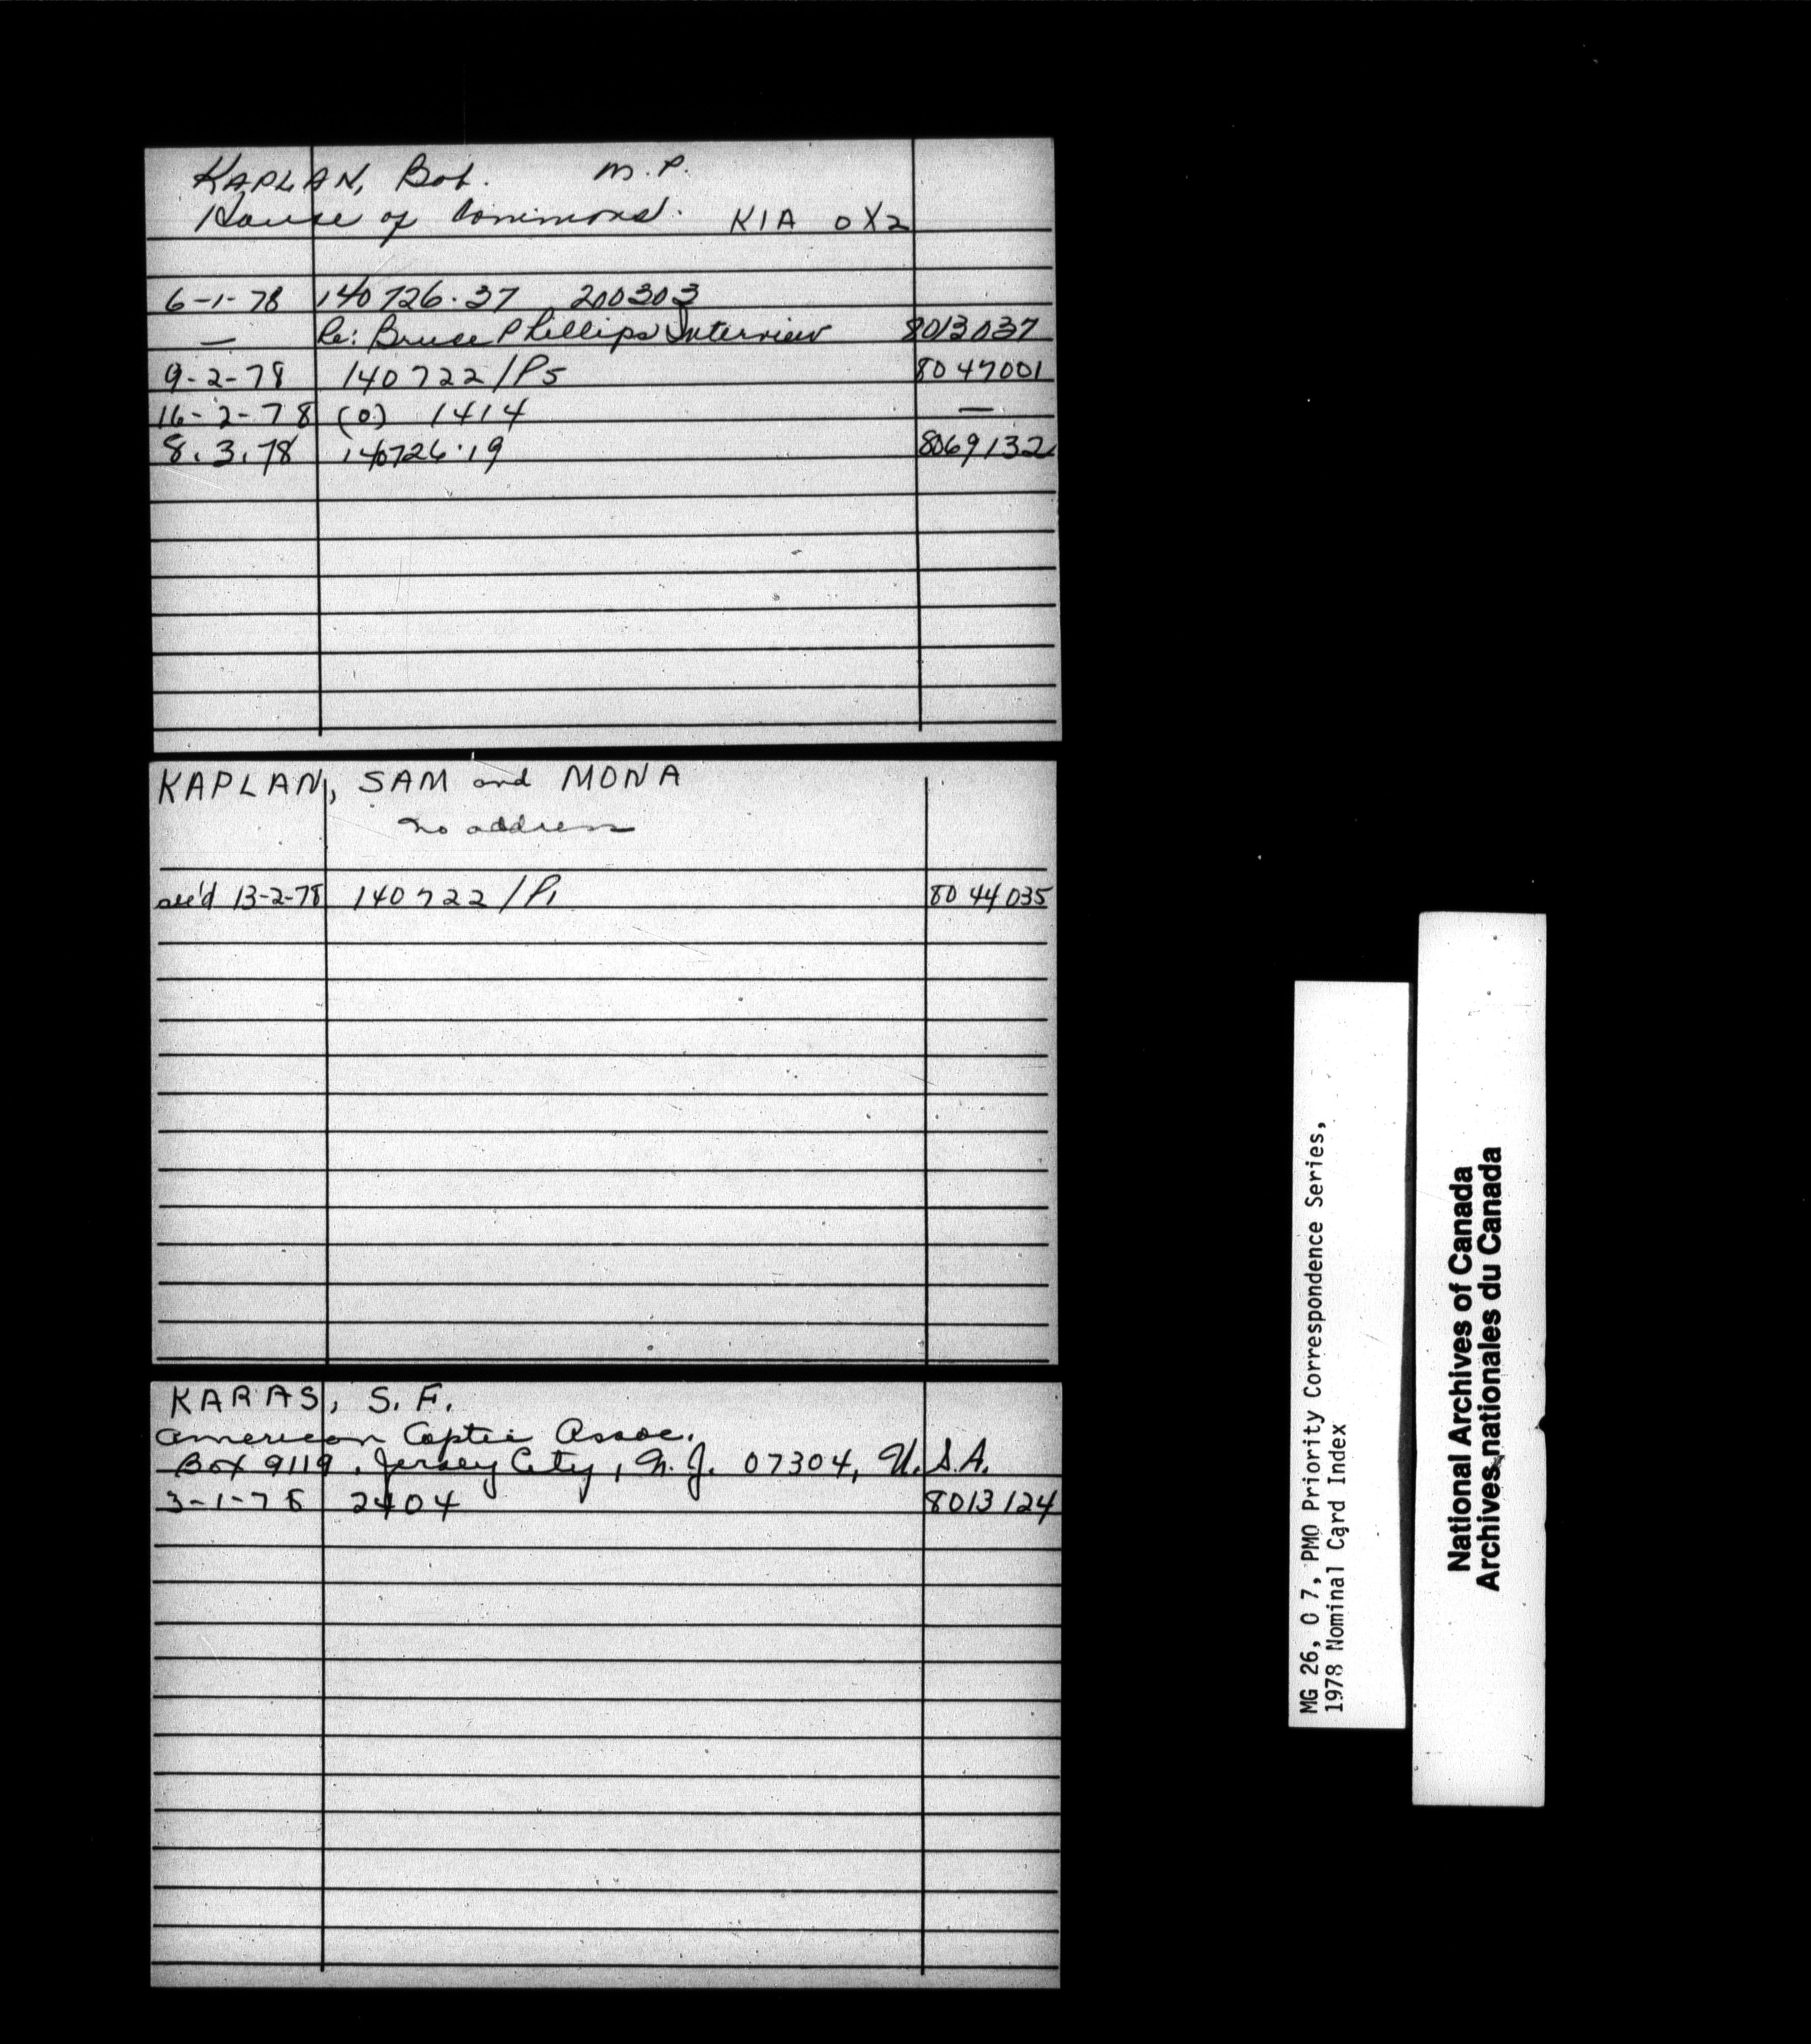 KAPLAN, Bob. M.P.
House of Commons. K1A 0X2
6-1-78 140726.37 200303
— Re: Bruce Phillips Interview 8013037
9-2-78 140722/P5 8047001
16-2-78 (0) 1414 —
8.3.78 140726.19 8069132
KAPLAN, SAM and MONA
no address
rec'd 13-2-78 140722/P1 8044035
KARAS, S.F.
American Coptic Assoc.
Box 9119, Jersey City, N.J. 07304, U.S.A.
3-1-78 2404 8013124
MG 26, O 7, PMO Priority Correspondence Series,
1978 Nominal Card Index
National Archives of Canada
Archives nationales du Canada